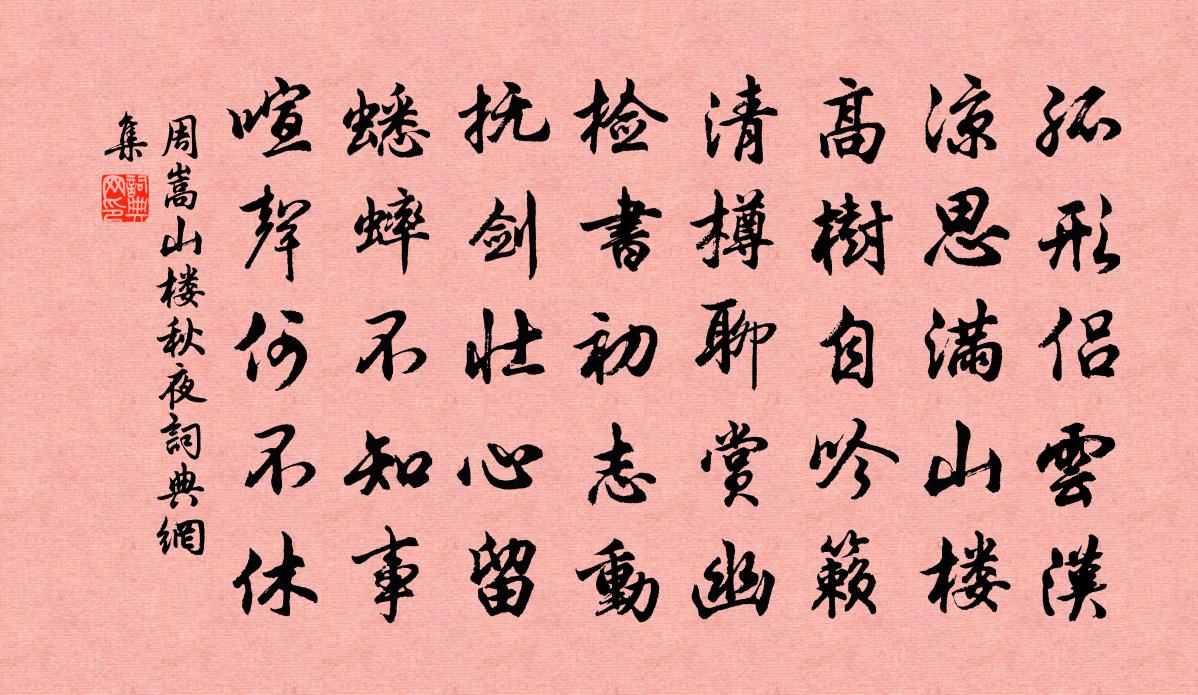 孤形侣雲漢
涼思满山楼
高樹自吟籟
清樽聊賞幽
检書初志動
抚剑壮心留
蟋蟀不知事
喧聲何不休
周嵩山楼秋夜詞典網
集
詞典
网印